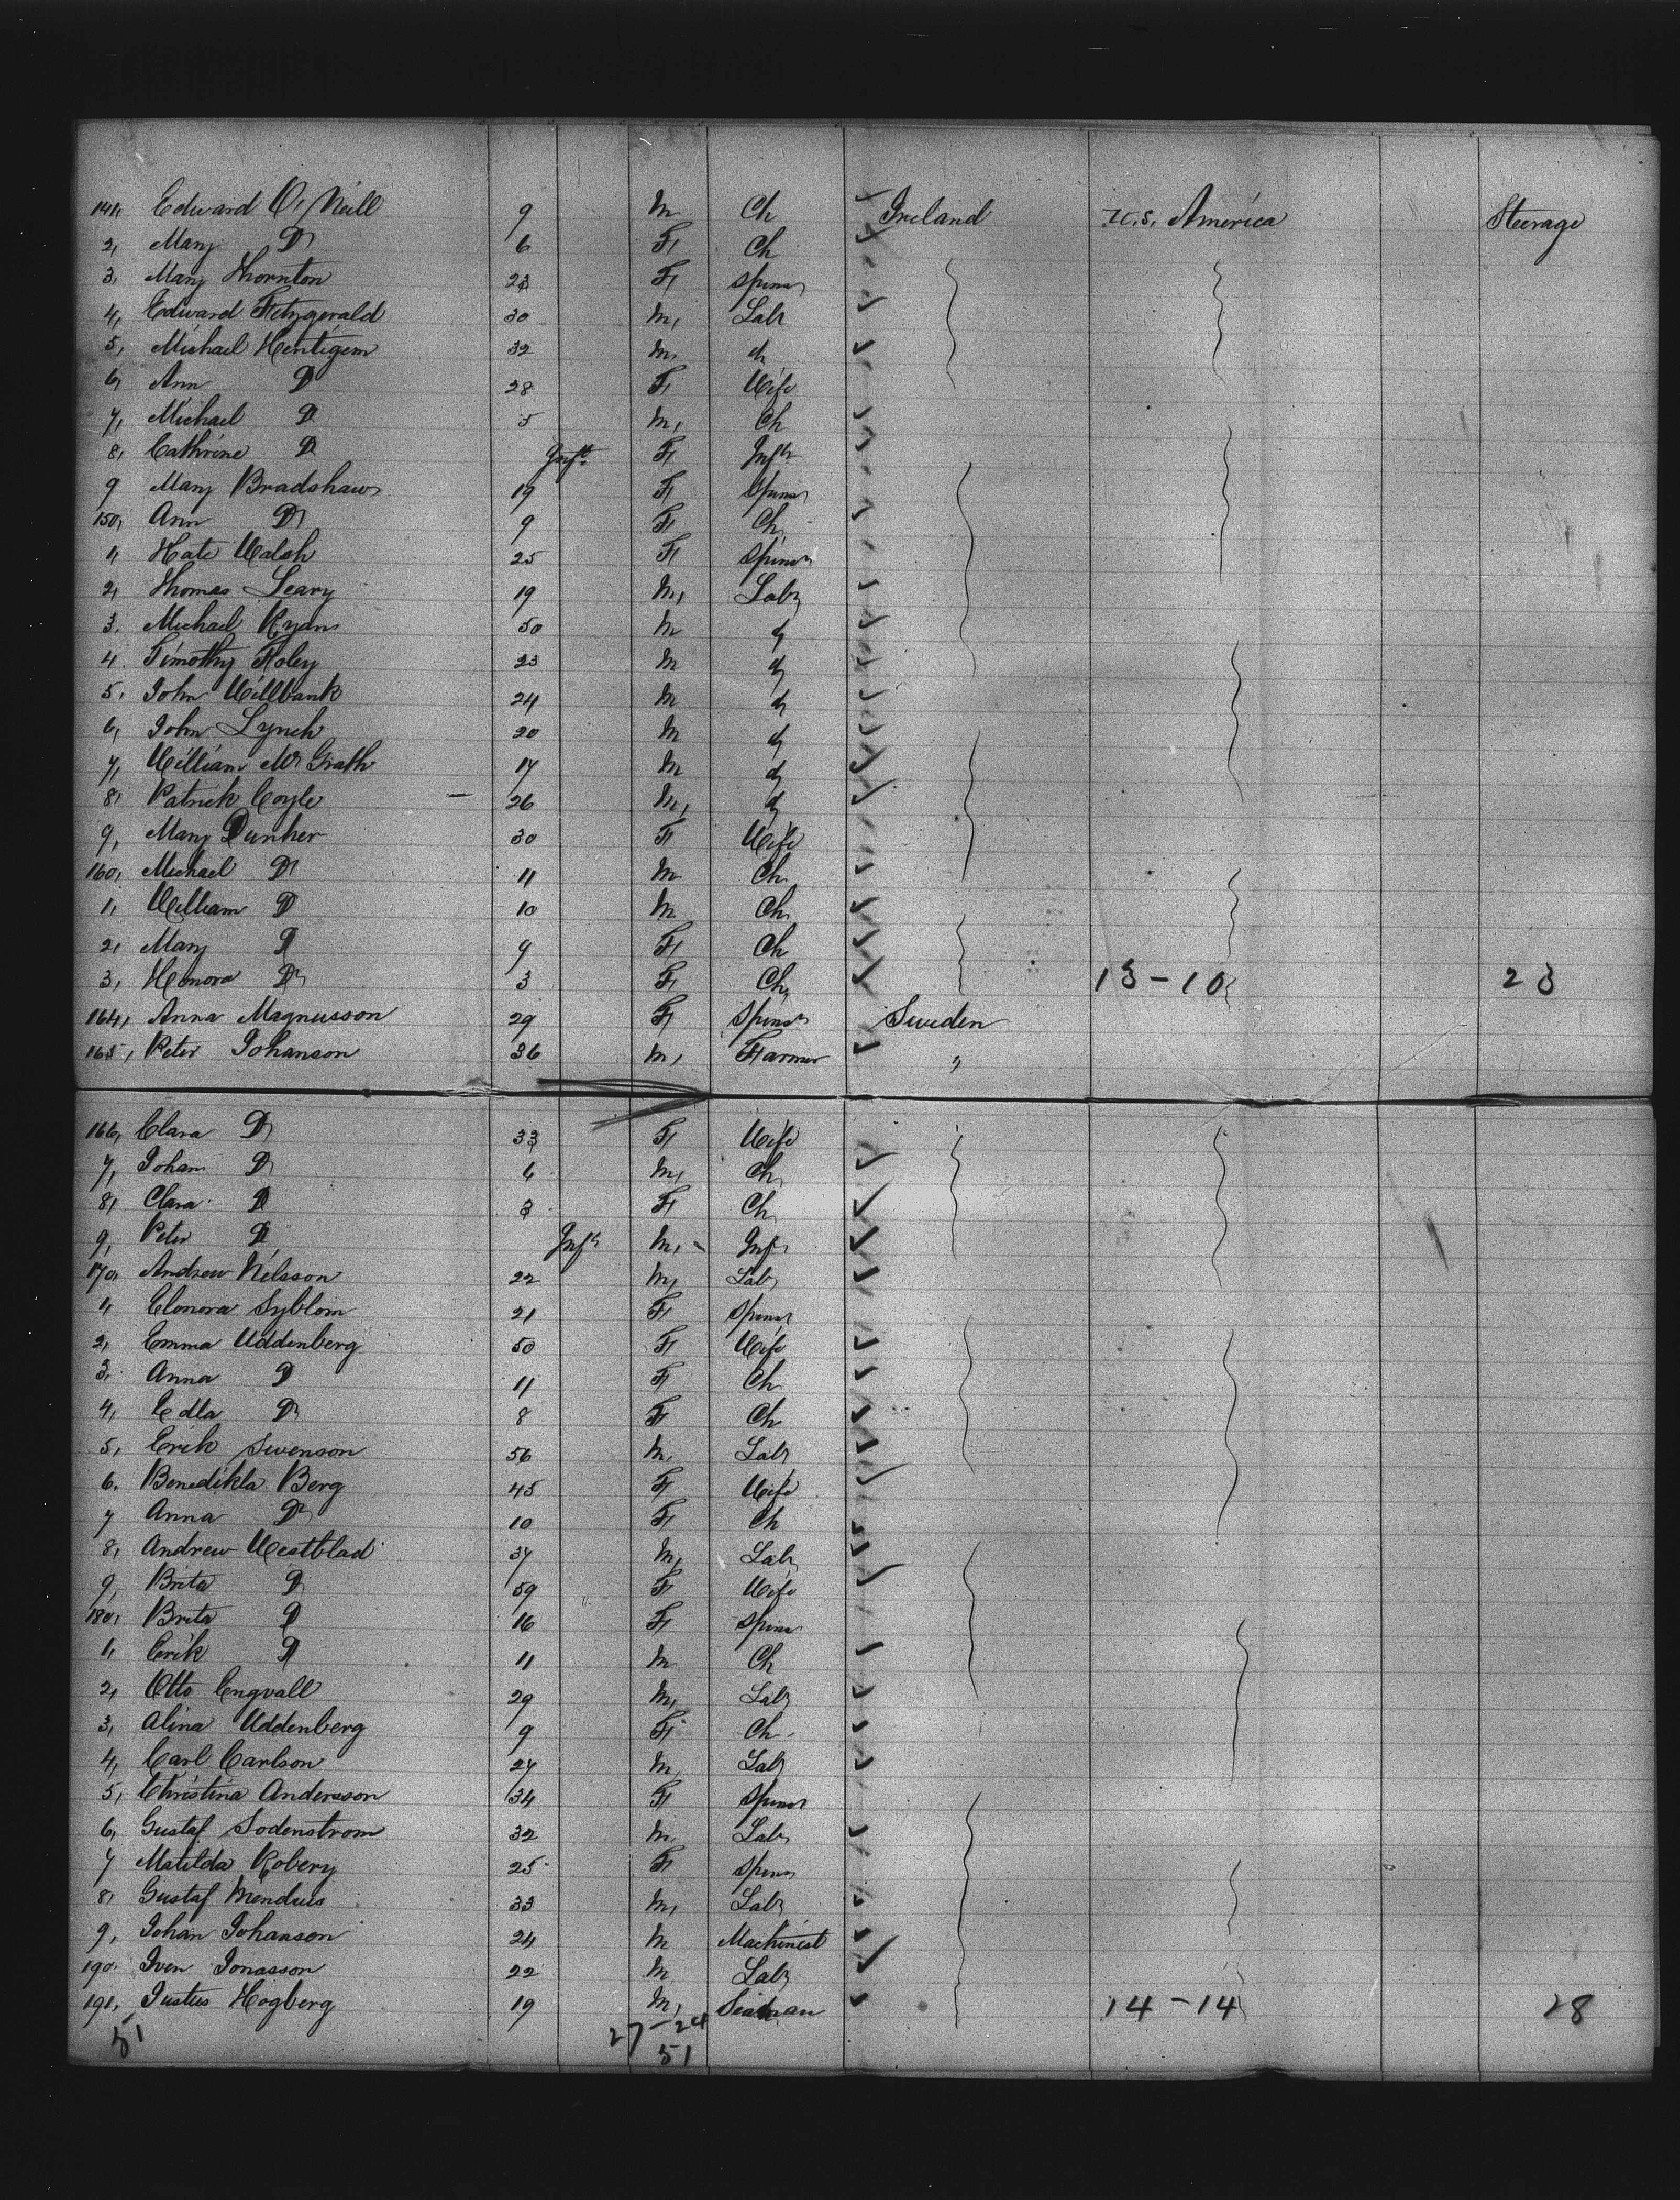 141, Edward O'Neill 9 M Ch Ireland U.S. America Steerage
2, Mary Do 6 F Ch
3, Mary Thornton 23 F Spinsr
4, Edward Fitzgerald 30 M, Labr
5, Michael 32 M, do
6, Ann Do 28 F Wife
7, Michael Do 5 M, Ch
8, Cathrine Do Inft F Inft
9 Mary Bradshaw 19 F Spinsr
150, Ann Do 9 F Ch
1, Kate Walsh 25 F Spinsr
2, Thomas Leary 19 M, Labr
3. Michael Ryan 50 M do
4. Timothy Foley 23 M do
5, John Willbank 24 M do
6, John Lynch 20 M do
7, William McGrath 17 M do
8, Patrick Coyle — 26 M, do
9, Mary Dunher 30 F Wife
160, Michael Do 11 M Ch
1, William Do 10 M Ch
2, Mary Do 9 F Ch
3, Honora Do 3 F Ch 13-10 23
164, Anna Magnusson 29 F Spinsr Sweden
165, Peter Johanson 36 M, Farmer "
166, Clara Do 33 F Wife
7, Johan Do 6 M, Ch
8, Clara Do 3 F Ch
9, Peter Do Inft M, Inft
170, Andrew Nilsson 22 M, Labr
1, Elonora Syblom 21 F Spinsr
2, Emma Uddenberg 50 F Wife
3. Anna Do 11 F Ch
4, Edla Do 8 F Ch
5, Erik Swenson 56 M, Labr
6. Benedikta Berg 45 F Wife
7 Anna Do 10 F Ch
8, Andrew Westblad 37 M, Labr
9, Brita Do 59 F Wife
180, Brita Do 16 F Spinsr
1, Erik Do 11 M Ch
2, Otto Engvall 29 M, Labr
3, Alina Uddenberg 9 F Ch
4, Carl Carlson 27 M, Labr
5, Christina Andersson 34 F Spinsr
6, Gustaf Sodenstrom 32 M, Labr
7 Matilda Robery 25 F Spinsr
8, Gustaf 33 M, Labr
9, Johan Johanson 24 M Machinist
190 Iven Jonasson 22 M Labr
191, Justus Hogberg 19 M, Seaman 14-14 28
51 27-24
51